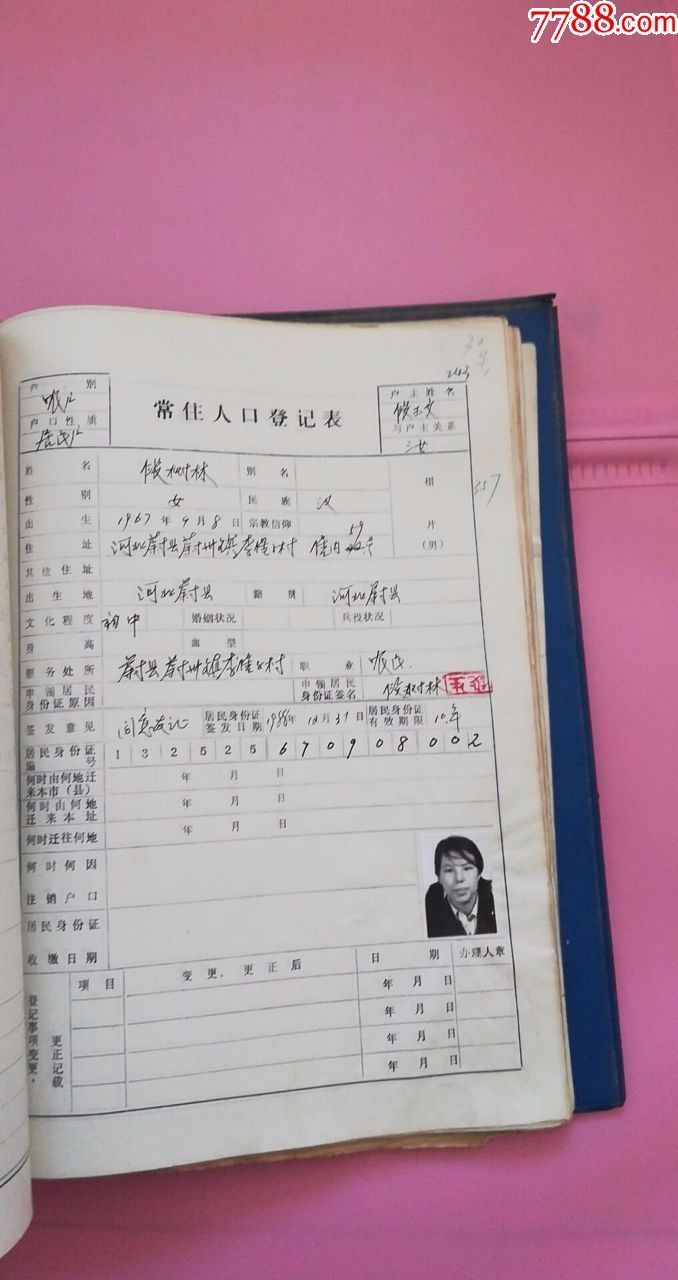 7788.com
30号
户别 农户
户口性质 居民户
常住人口登记表
户主姓名
与户主关系 三女
姓名 侯树林 别名
性别 女 民族 汉
出生 年 9 月 8 日 宗教信仰
相片（男）
357
住址 河北蔚县蔚州镇李 村 59
其他住址
出生地 河北蔚县 籍贯 河北蔚县
文化程度 初中 婚姻状况 兵役状况
身高 血型
服务处所 蔚县蔚州镇李 村 职业 农民
申领居民身份证原因 申领居民身份证签名 侯树林
签发意见 同意发证 居民身份证签发日期 1988年12月31日 居民身份证有效期限 10年
居民身份证编号 1 3 2 5 2 5 6 0 9 0 8 0 0 2
何时由何地迁来本市（县） 年 月 日
何时由何地迁来本址 年 月 日
何时迁往何地 年 月 日
何时何因
注销户口
居民身份证
收缴日期
登记事项变更、更正记载
项目 变更、更正后 日期 办理人章
年 月 日
年 月 日
年 月 日
年 月 日